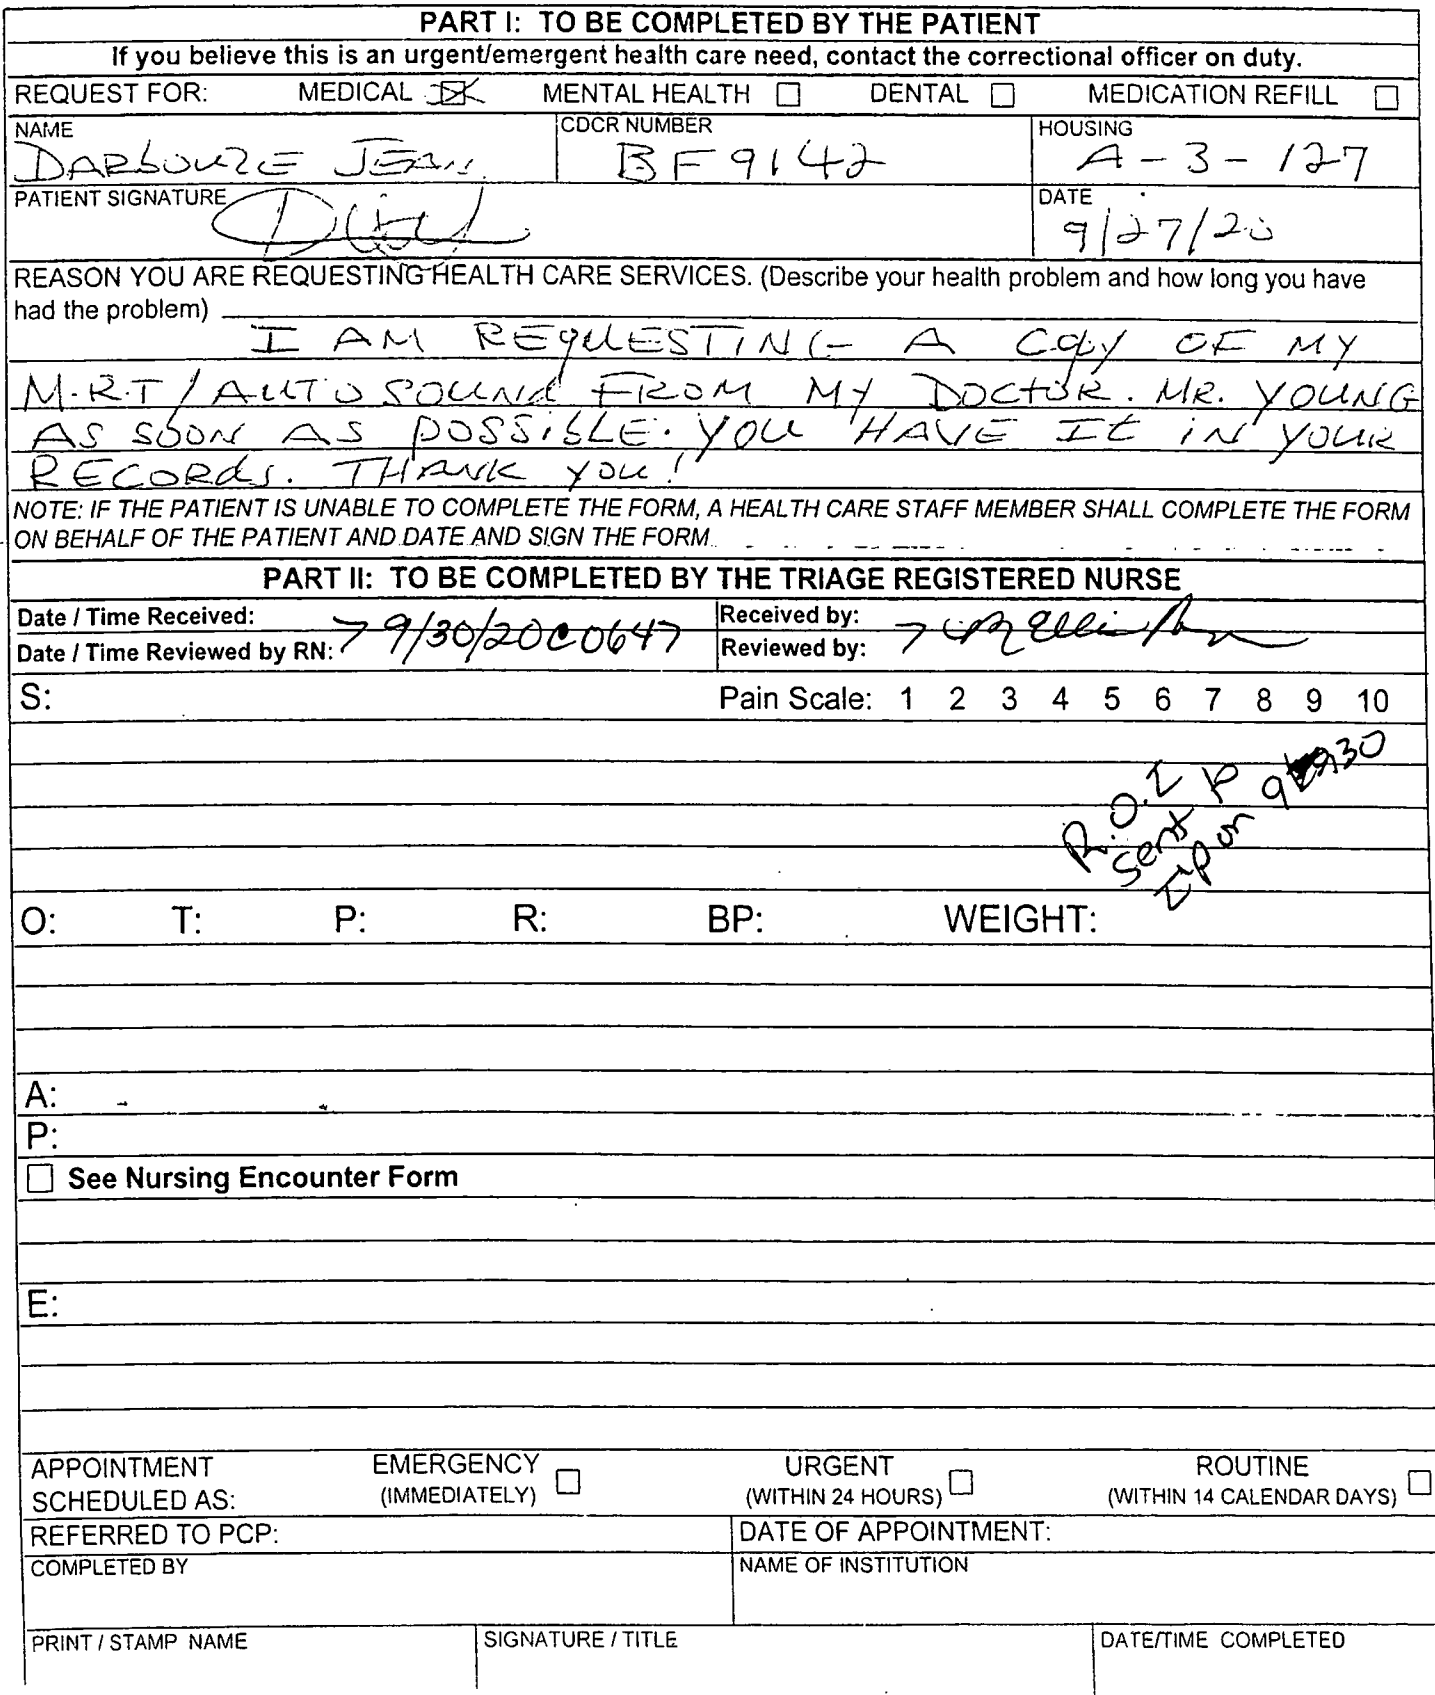 PART I: TO BE COMPLETED BY THE PATIENT
If you believe this is an urgent/emergent health care need, contact the correctional officer on duty.
REQUEST FOR: MEDICAL ☒ MENTAL HEALTH ☐ DENTAL ☐ MEDICATION REFILL ☐
NAME CDCR NUMBER HOUSING
DARBOUZE JEAN. BF9142 A-3-127
PATIENT SIGNATURE DATE
9/27/20
REASON YOU ARE REQUESTING HEALTH CARE SERVICES. (Describe your health problem and how long you have
had the problem)
I AM REQUESTING A COPY OF MY
M.R.T / AUTO SOUND FROM MY DOCTOR. MR. YOUNG
AS SOON AS POSSIBLE. YOU HAVE It iN YOUR
RECORds. THANK YOU!
NOTE: IF THE PATIENT IS UNABLE TO COMPLETE THE FORM, A HEALTH CARE STAFF MEMBER SHALL COMPLETE THE FORM
ON BEHALF OF THE PATIENT AND DATE AND SIGN THE FORM
PART II: TO BE COMPLETED BY THE TRIAGE REGISTERED NURSE
Date / Time Received: Received by:
9/30/20 0647
Date / Time Reviewed by RN: Reviewed by:
S: Pain Scale: 1 2 3 4 5 6 7 8 9 10
R.O.I
sent
on 930
O: T: P: R: BP: WEIGHT:
A:
P:
☐ See Nursing Encounter Form
E:
APPOINTMENT EMERGENCY ☐ URGENT ☐ ROUTINE ☐
SCHEDULED AS: (IMMEDIATELY) (WITHIN 24 HOURS) (WITHIN 14 CALENDAR DAYS)
REFERRED TO PCP: DATE OF APPOINTMENT:
COMPLETED BY NAME OF INSTITUTION
PRINT / STAMP NAME SIGNATURE / TITLE DATE/TIME COMPLETED